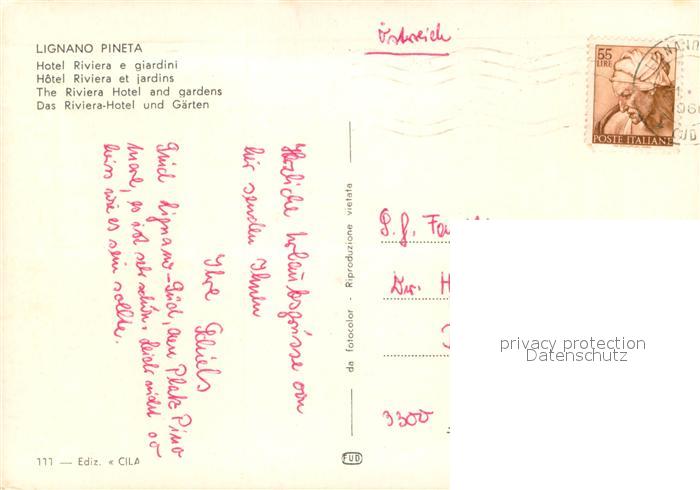 LIGNANO PINETA
Hotel Riviera e giardini
Hôtel Riviera et jardins
The Riviera Hotel and gardens
Das Riviera-Hotel und Gärten
Österreich
55
LIRE
POSTE ITALIANE
Herzliche Urlaubsgrüsse von
hier senden Ihnen
Ihre
Süd Lignano-Süd, am Platz Pino
mare, es ist sehr schön. Leider nicht so
heiss wie es sein sollte.
da fotocolor - Riproduzione vietata
P. g. Fam
Dir. H
3300
privacy protection
Datenschutz
111 — Ediz. « CILA
FUD